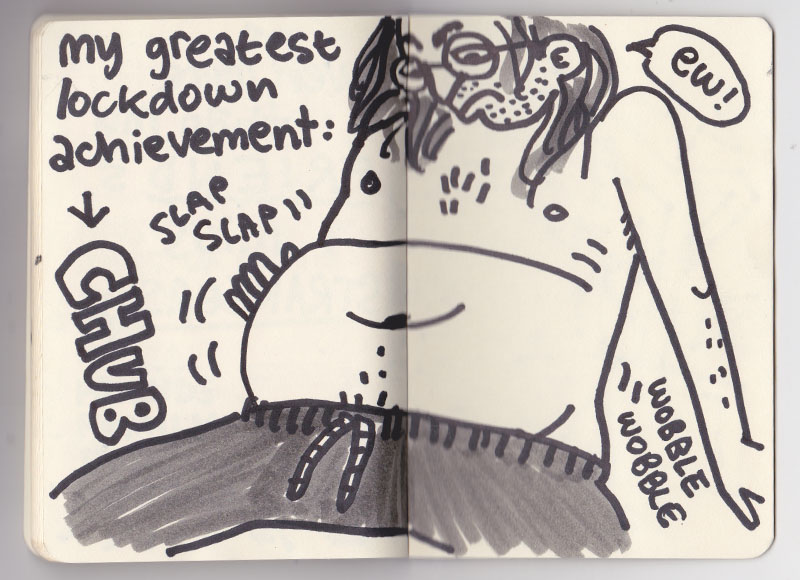 my greatest
lockdown
achievement:
SLAP
SLAP
CHUB
ew!
WOBBLE
WOBBLE